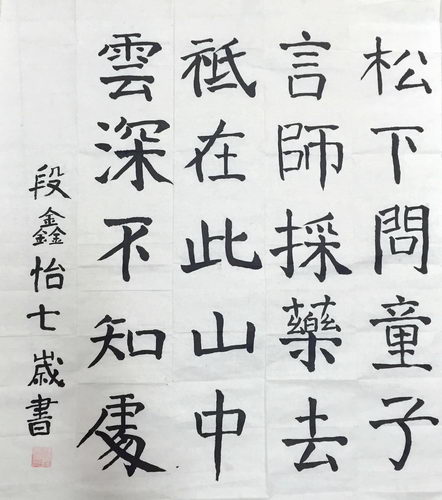 松下問童子
言師採藥去
祇在此山中
雲深不知處
段鑫怡七歲書